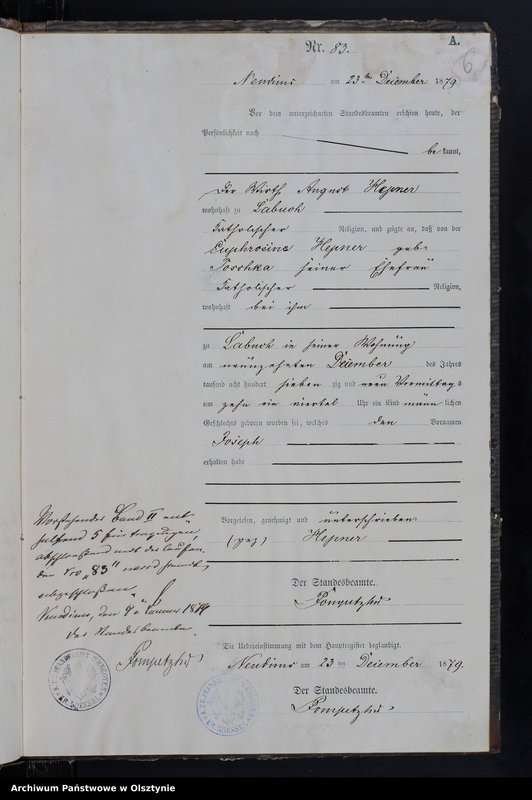 Nr. 83.
A.
6
am 23ten Dezember 1879
Vor dem unterzeichneten Standesbeamten erschien heute, der
Persönlichkeit nach
be kannt,
der Wirth August Hepner
wohnhaft zu Labuch
katholischer Religion, und zeigte an, daß von der
Euphrosine Hepner geb.
seiner Ehefrau
katholischer Religion,
wohnhaft bei ihm
zu Labuch in seiner Wohnung
am neunzehnten Dezember des Jahres
tausend acht hundert sieben zig und neun Vormittags
um zehn ein viertel Uhr ein Kind männ lichen
Geschlechts geboren worden sei, welches den Vornamen
Joseph
erhalten habe
Vorgelesen, genehmigt und unterschrieben
(gez) Hepner
Der Standesbeamte.
Die Uebereinstimmung mit dem Hauptregister beglaubigt.
am 23 ten Dezember 1879.
Der Standesbeamte.
Vorstehender Band II
5 Eintragungen,
abschließend mit der laufen-
den No "83"
abgeschlossen
Der Standesbeamte
Archiwum Państwowe w Olsztynie